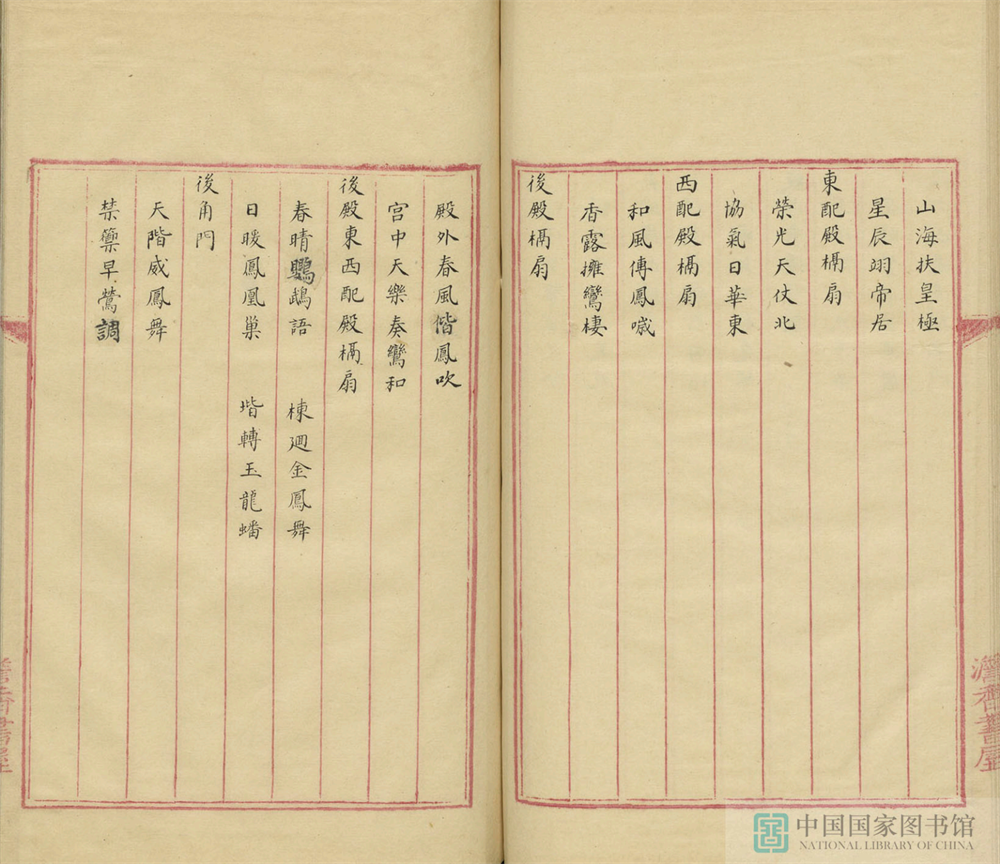 山海扶皇極
星辰翊帝居
東配殿槅扇
榮光天仗北
協氣日華東
西配殿槅扇
和風傳鳳噦
香露擁鸞棲
後殿槅扇
殿外春風偕鳳吹
宮中天樂奏鸞和
後殿東西配殿槅扇
春晴鸚鵡語　棟迴金鳳舞
日暖鳳凰巢　堦轉玉龍蟠
後角門
天階威鳳舞
禁籞早鶯調
澹香書屋
中国国家图书馆
NATIONAL LIBRARY OF CHINA